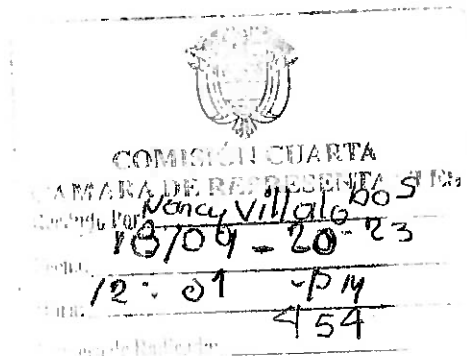 COMISIÓN CUARTA
CAMARA DE REPRESENTANTES
Recibido Por Nancy Villalobos
18/09-2023
12:01 PM
454